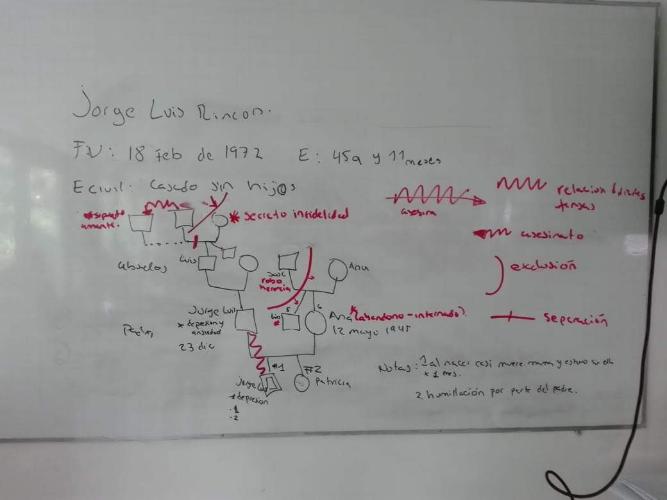 Jorge Luis Rincon.
FN: 18 Feb de 1972 E: 45a y 11 meses
E civil: Casado sin hijos
* supuesto amante.
* secreto infidelidad
asesina
relacion
tensas
asesinato
exclusión
separación
abuelos
Luis
José
robo
herencia
Ana
Jorge Luis
* depresion y
ansiedad
23 dic
tio
*
5
6
Ana
* (abandono - internado).
12 mayo 1945
#1
#2
Jorge
* depresion
-1
-2
Patricia
Notas: 1 al nacer casi muere mama y estuvo sin ella
x 1 mes.
2 humillación por parte del padre.